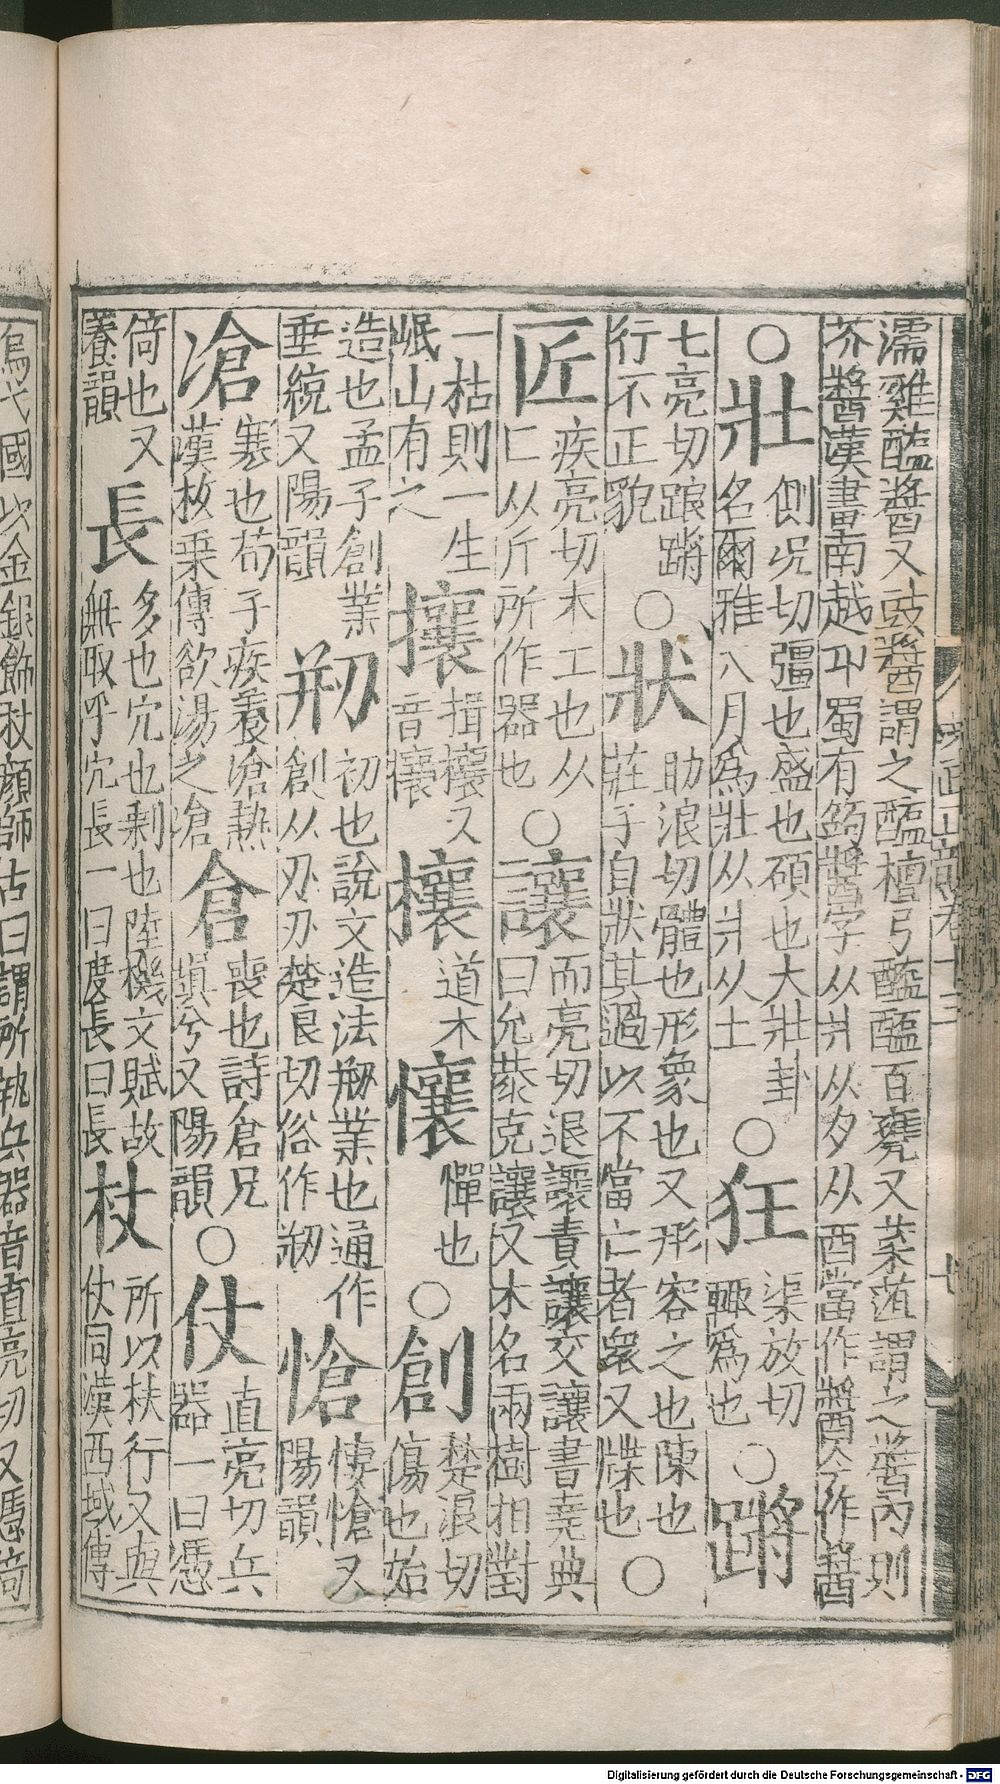 濡雞醢醬又豉醬謂之醢檀弓醯醢百甕又菜菹謂之醬內則
芥醬漢書南越卭蜀有蒟醬字从爿从夕从酉當作醬今作醬
○壯側况切彊也盛也碩也大壯卦
名爾雅八月爲壯从爿从士○狂渠放切
輒爲也○蹡
七亮切踉蹡
行不正貌○狀助浪切體也形象也又形容之也陳也
莊子自狀其過以不當亡者衆又牒也○
匠疾亮切木工也从
匚从斤所作器也○讓而亮切退讓責讓交讓書堯典
曰允恭克讓又木名兩樹相對
一枯則一生
岷山有之攘揖攘又
音儴欀道木懹憚也○創楚浪切
傷也始
造也孟子創業
垂統又陽韻刱初也說文造法刱業也通作
創从刃刅楚良切俗作刱愴悽愴又
陽韻
凔寒也荀子疾養凔熱
漢枚乘傳欲湯之凔倉喪也詩倉兄
塡兮又陽韻○仗直亮切兵
器一曰憑
倚也又
養韻長多也冗也剩也陸機文賦故
無取乎冗長一曰度長曰長杖所以扶行又與
仗同漢西域傳
烏弋國以金銀飾杖顏師古曰謂所執兵器音直亮切又憑倚
Digitalisierung gefördert durch die Deutsche Forschungsgemeinschaft - DFG